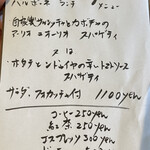 自家製サルシッチャとカボチャの
アーリオ・オーリオ スパゲティ
又は
・ホタテとンドゥイヤのオーレトマトソース
スパゲティ
サラダ、フォカッチャ付 1100yen
コーヒー 250yen
紅茶 250yen
エスプレッソ 300yen